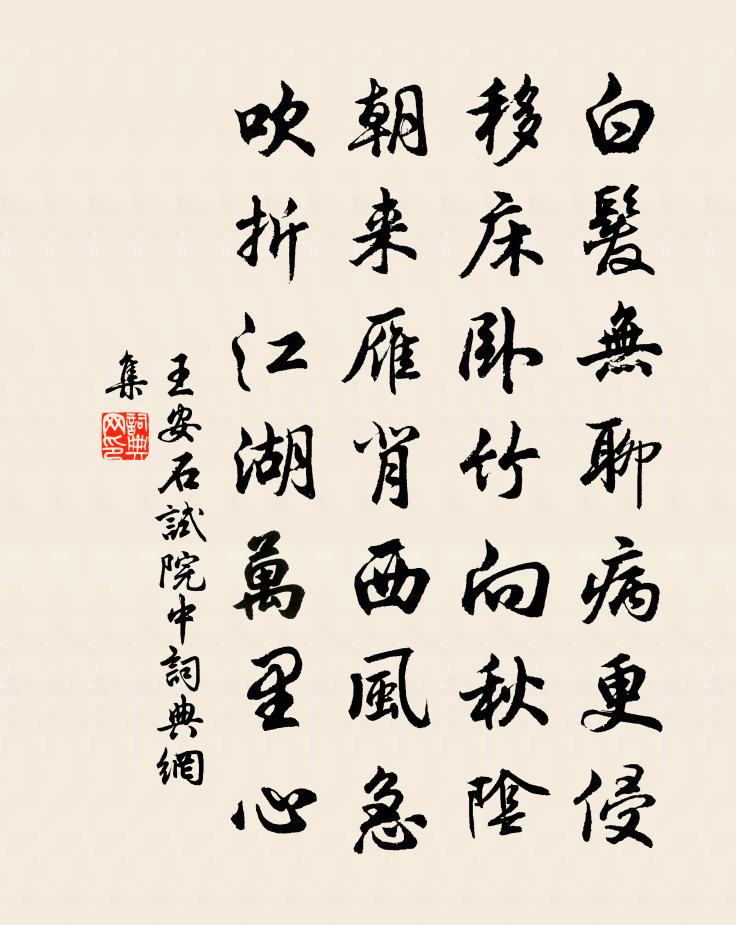 白髮無聊病更侵
移床卧竹向秋陰
朝来雁背西風急
吹折江湖萬里心
王安石試院中詞典網
集
詞典
网印